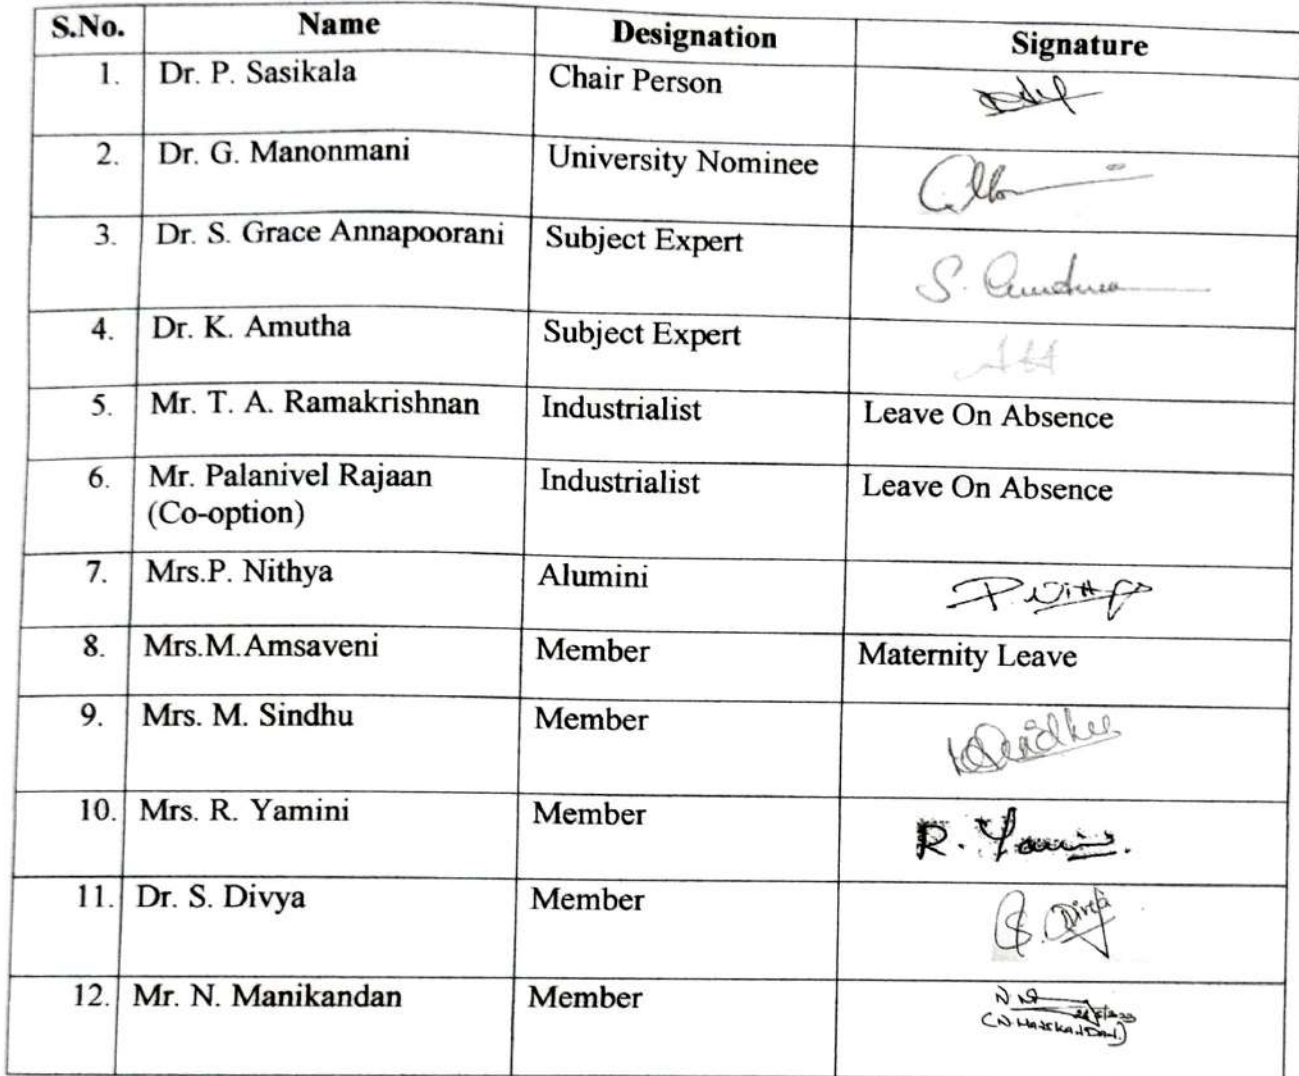 S.No. Name Designation Signature
1. Dr. P. Sasikala Chair Person
2. Dr. G. Manonmani University Nominee
3. Dr. S. Grace Annapoorani Subject Expert S.
4. Dr. K. Amutha Subject Expert
5. Mr. T. A. Ramakrishnan Industrialist Leave On Absence
6. Mr. Palanivel Rajaan Industrialist Leave On Absence
(Co-option)
7. Mrs.P. Nithya Alumini P. Nithya
8. Mrs.M.Amsaveni Member Maternity Leave
9. Mrs. M. Sindhu Member
10. Mrs. R. Yamini Member R. Yamini.
11. Dr. S. Divya Member S. Divya
12. Mr. N. Manikandan Member
(N.MANIKANDAN.)